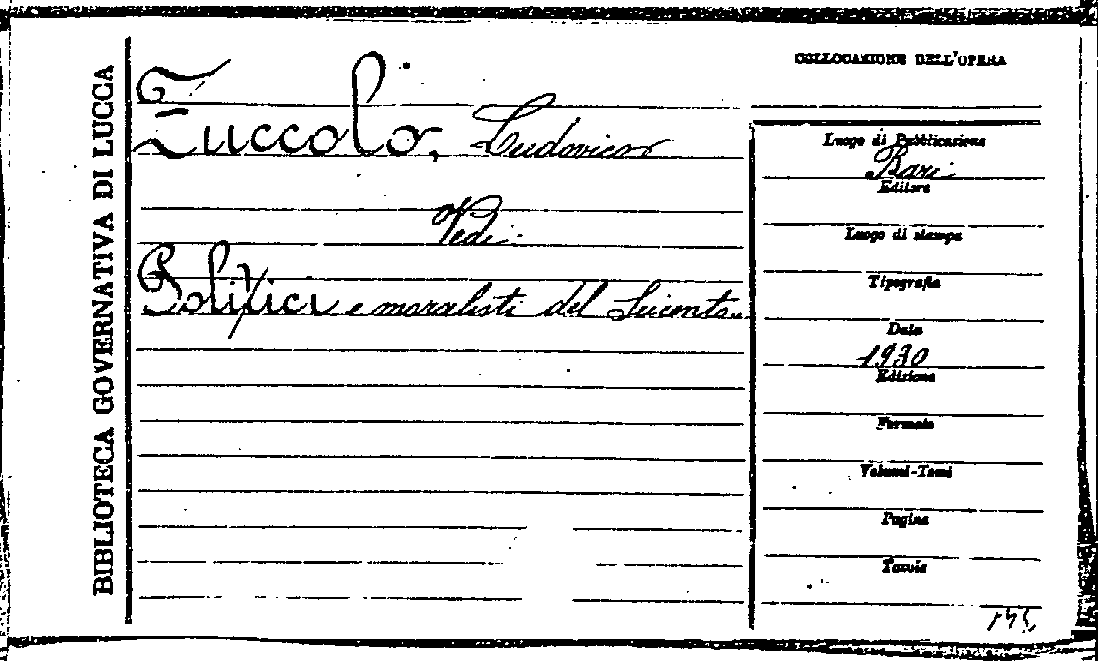 BIBLIOTECA GOVERNATIVA DI LUCCA
Zuccolo, Ludovico
Vedi:
Politici e moralisti del Seicento
COLLOCAZIONE DELL'OPERA
Luogo di Pubblicazione
Bari
Editore
Luogo di stampa
Tipografia
Data
1930
Edizione
Formato
Volumi-Tomi
Pagine
Tavole